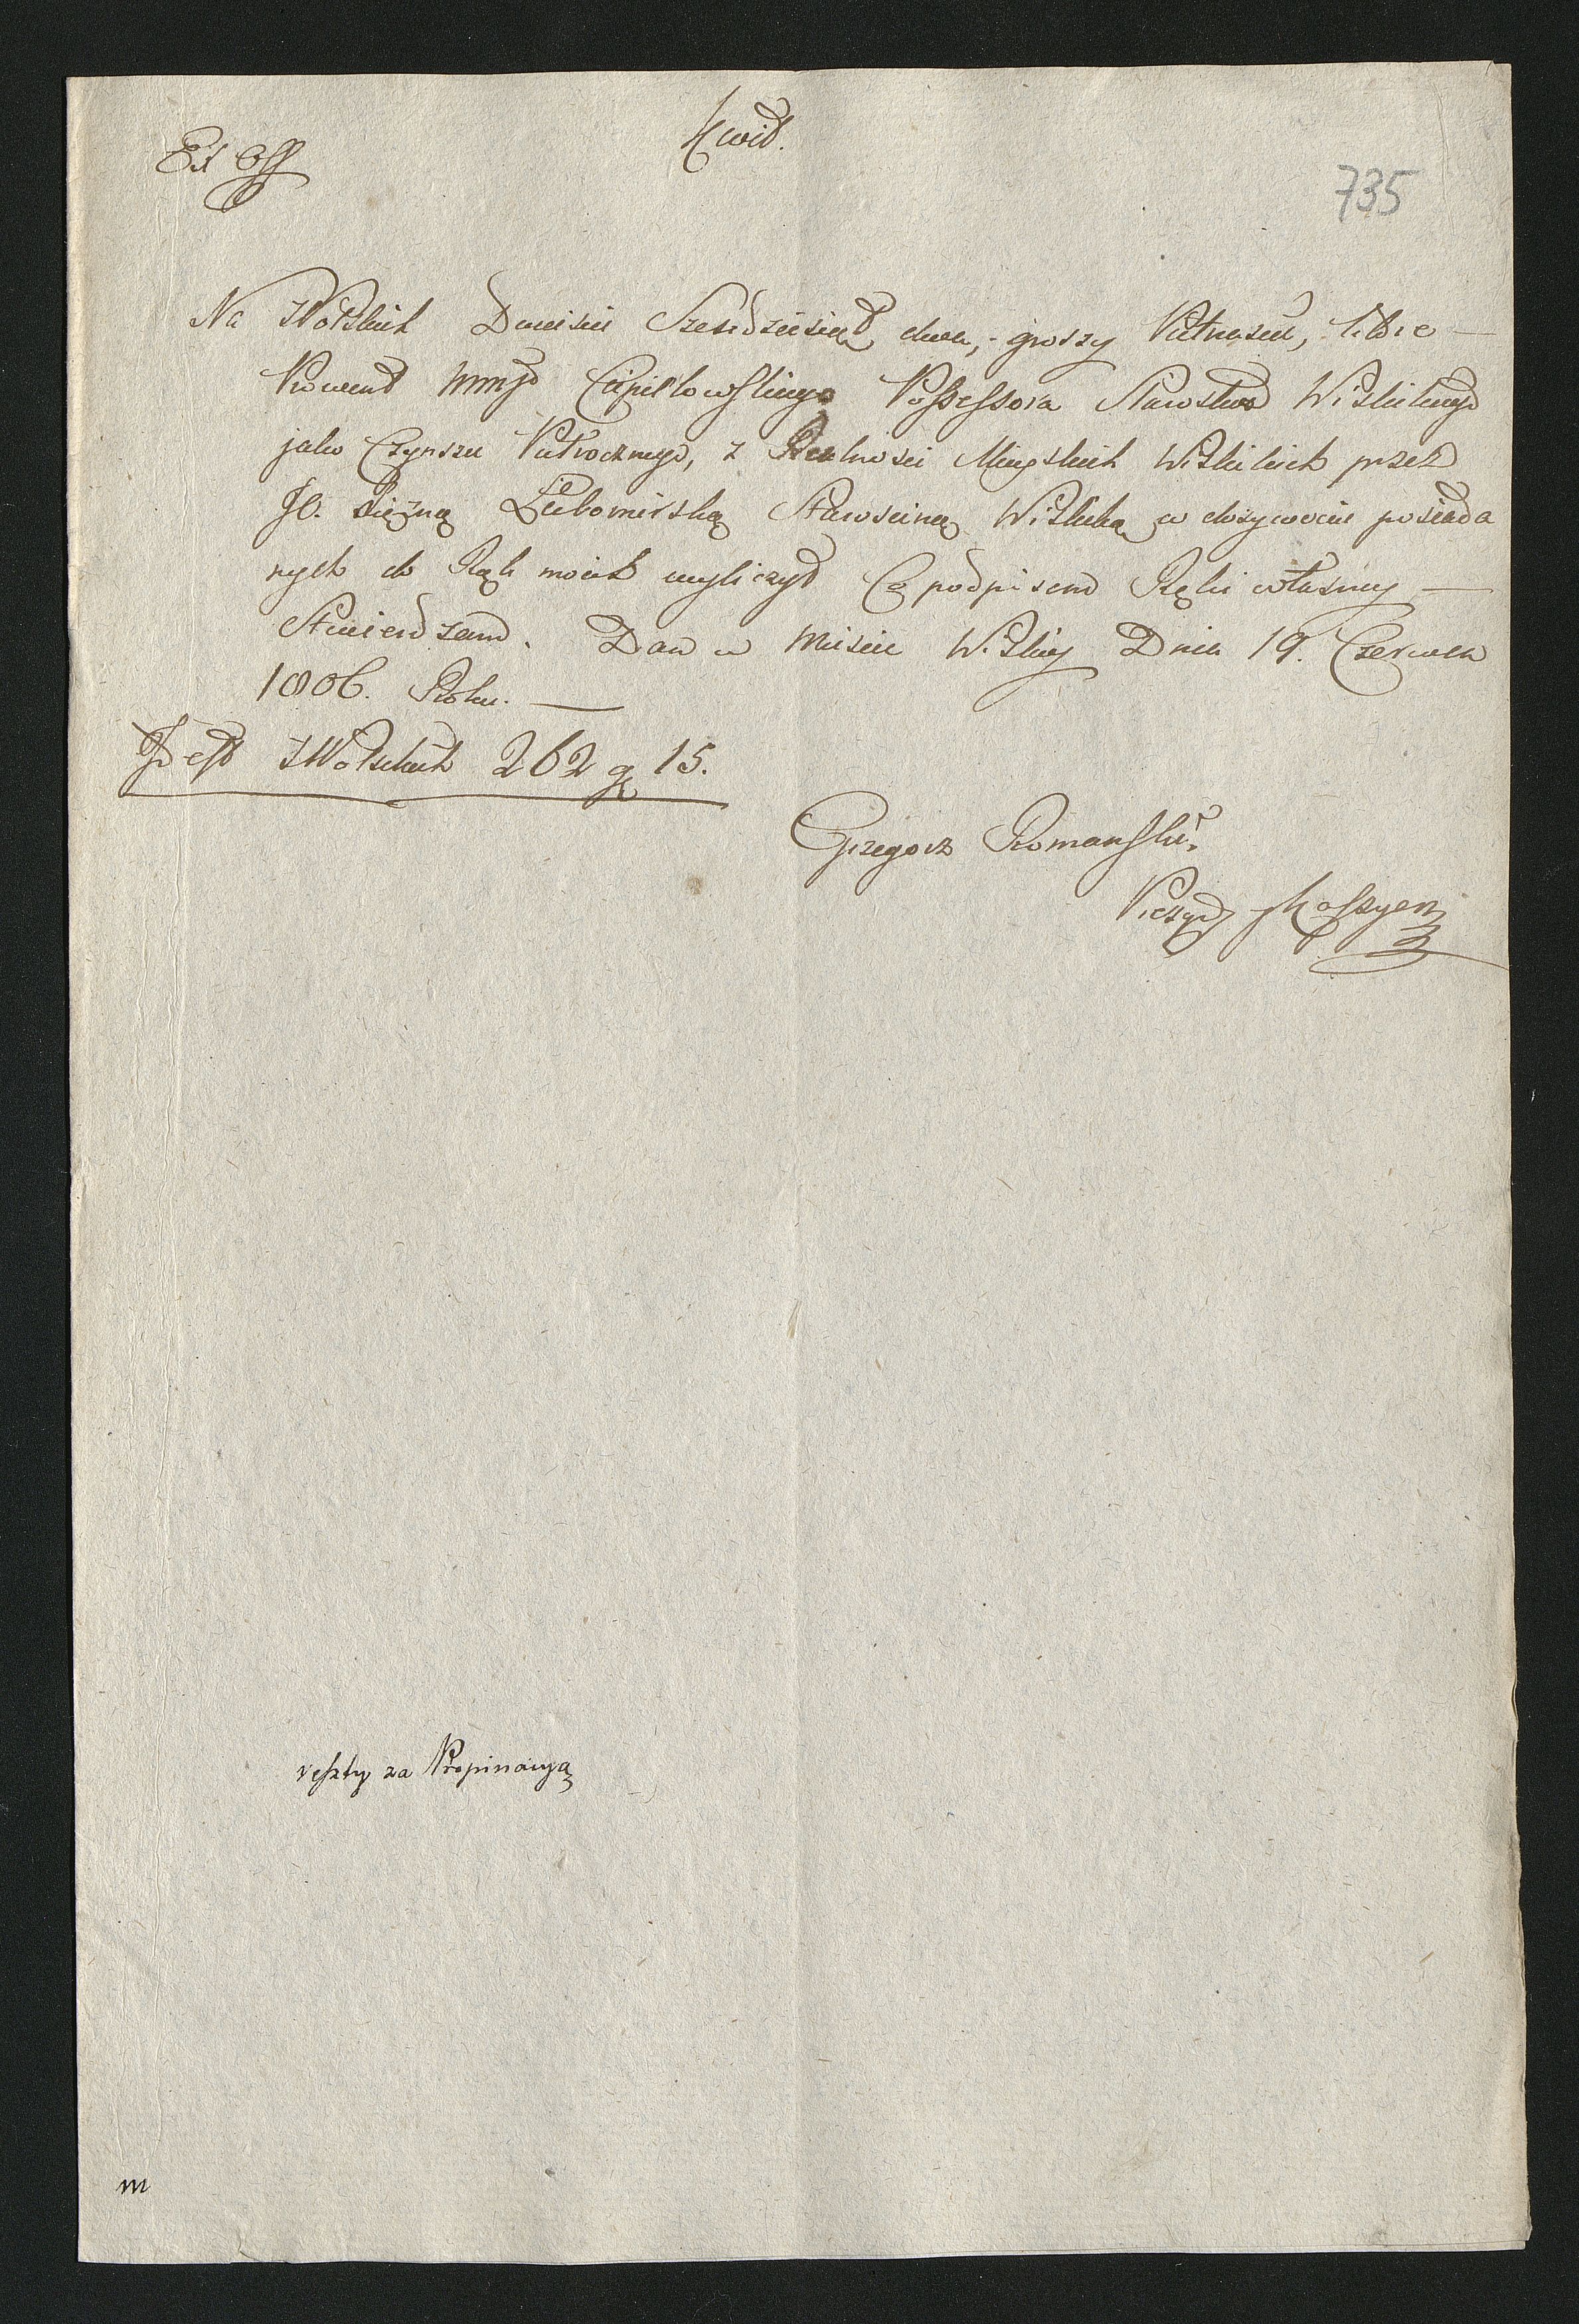 Kwit.
Ex Off
735
Na Zł Polskich Dwieście Sześćdziesiąt dwa, groszy Piętnaście, które
Prowent Wmgo Possessora Starostwa Wiślickiego
jako Czynszu Półrocznego, z Realności Mieyskich Wiślickich przez
JO. Xiężnę Lubomirską Starościnę Wiślicką w dożywocie posiada
nych do Rąk moich wyliczył Co podpisem Ręki własney
Stwierdzam. Dan w Mieście Wiślicy Dnia 19. Czerwca
1806. Roku.
Jest Zł Polskich 262 gr 15.
Grzegorz Romański.
Kassyer
reszty za Propinacyą
m